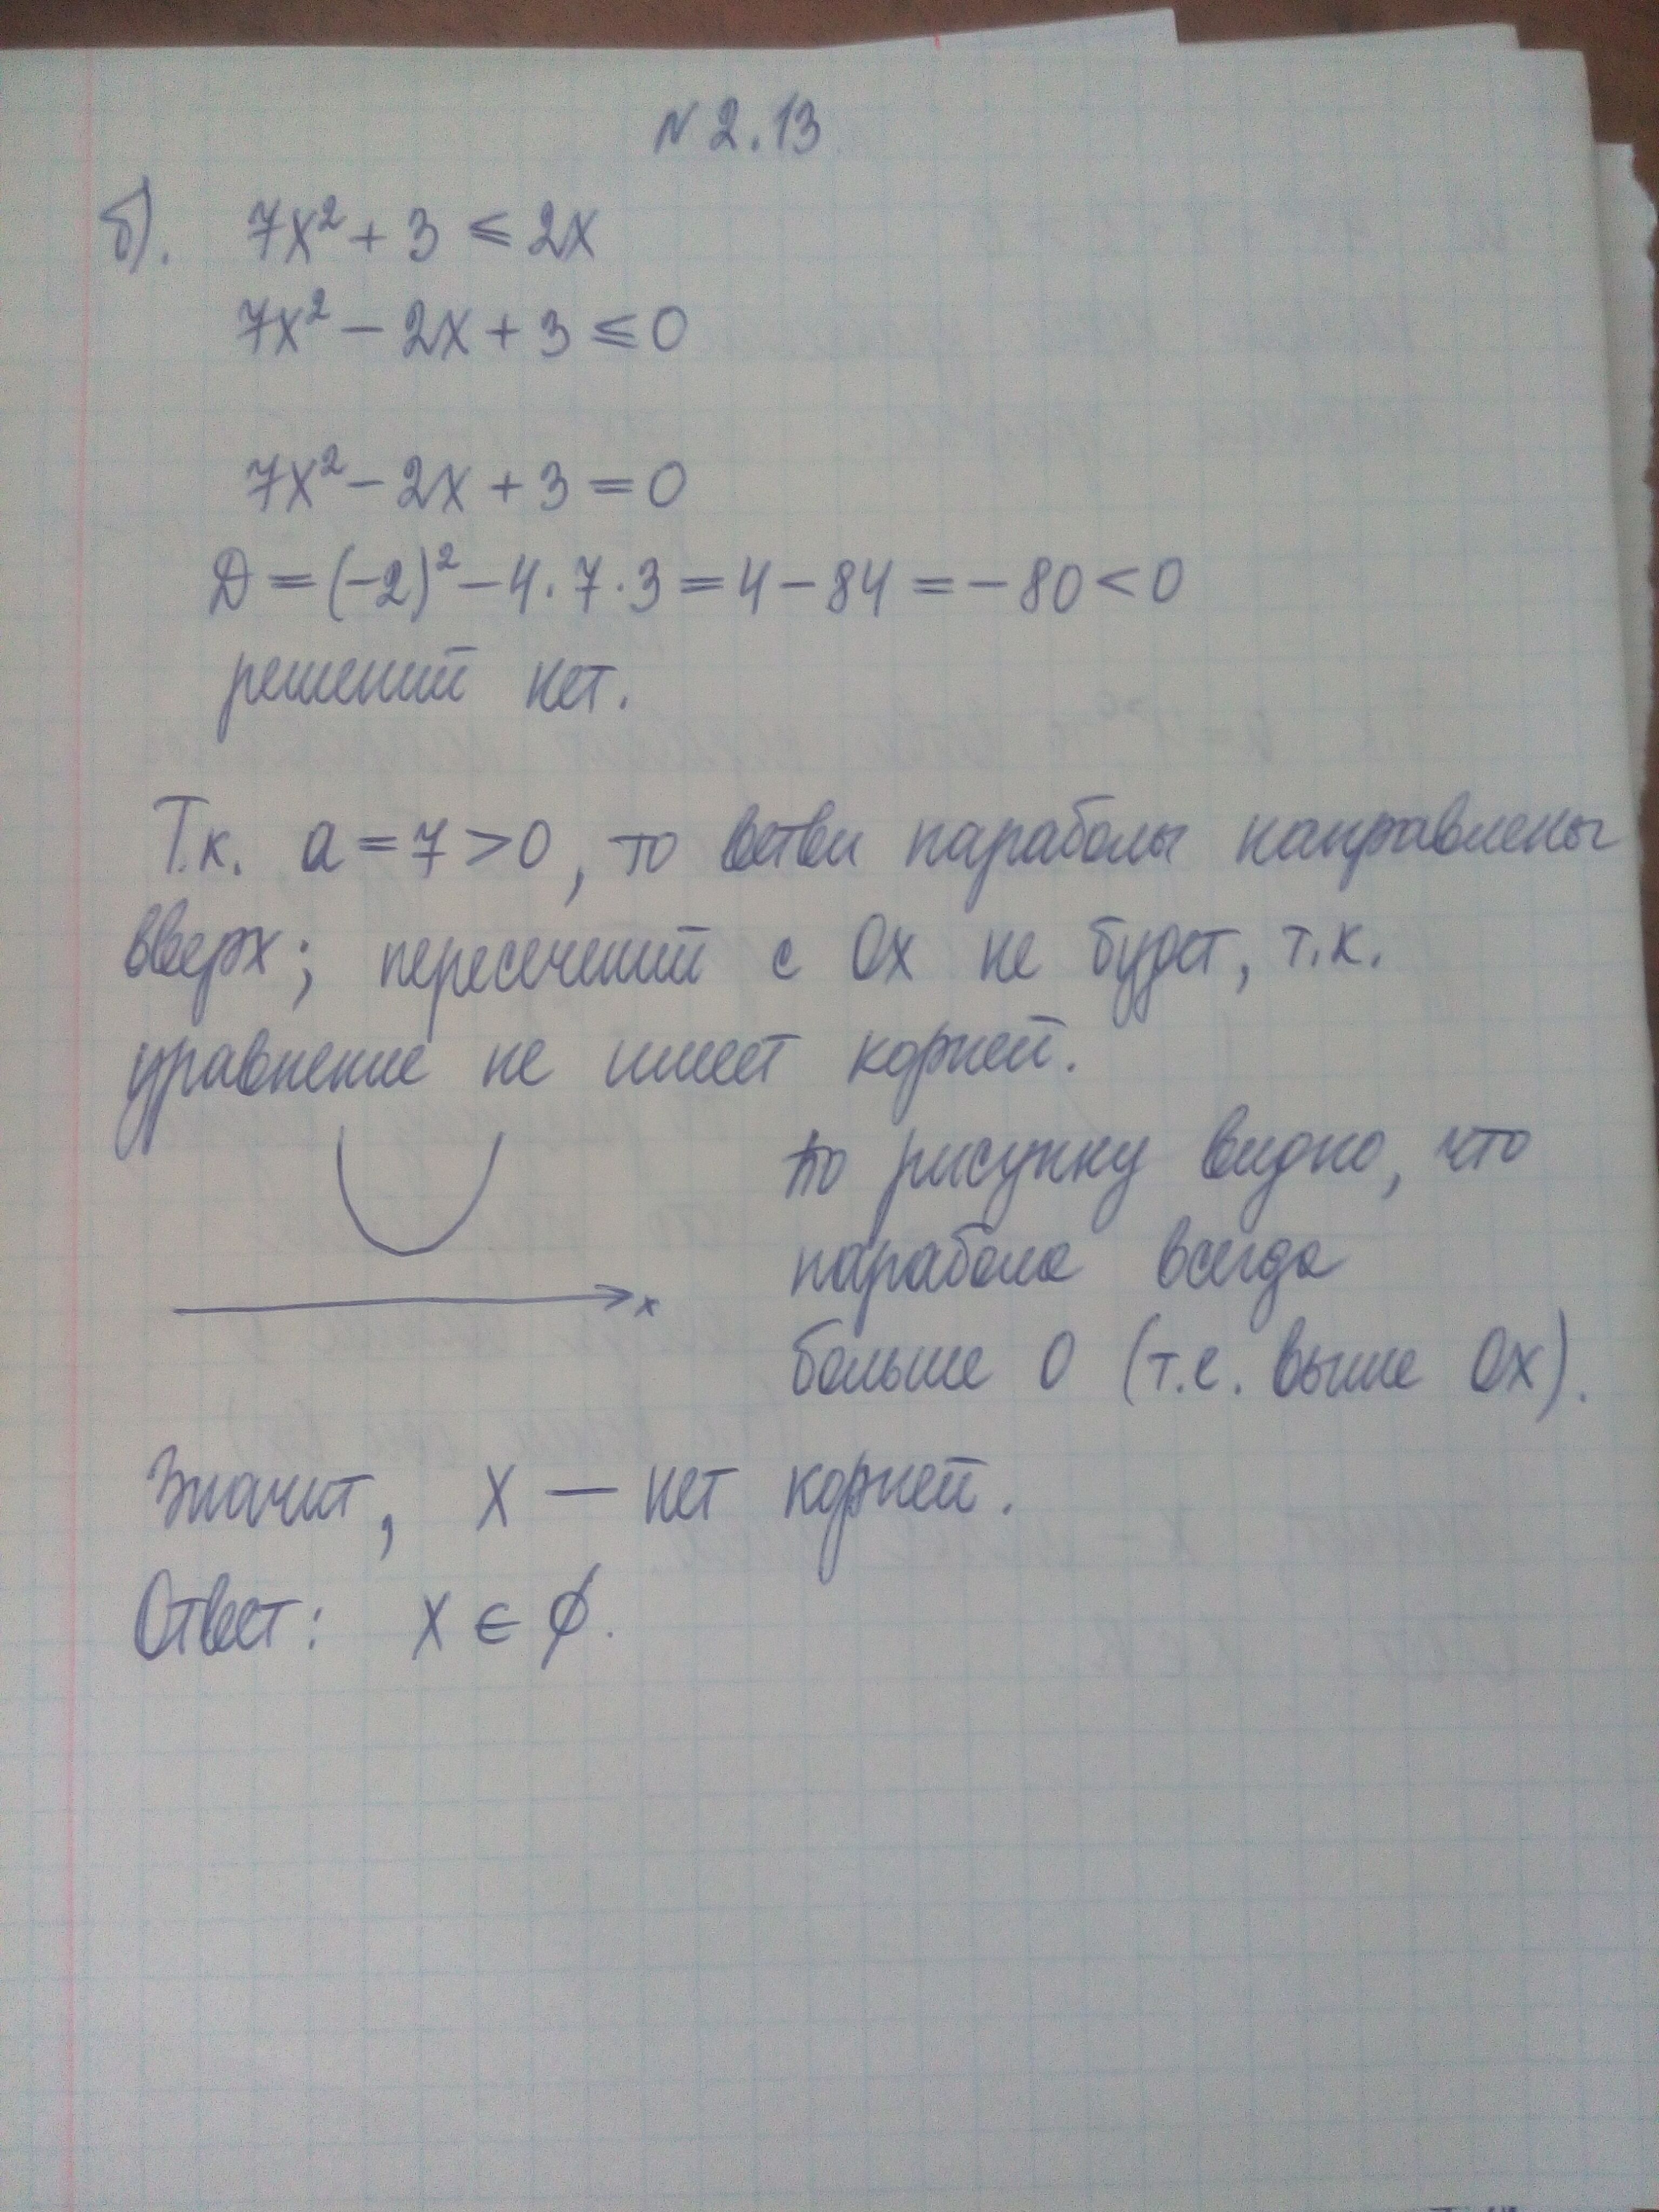 N 2.13
б). 7x² + 3 ≤ 2x
7x² – 2x + 3 ≤ 0
7x² – 2x + 3 = 0
D = (–2)² – 4 · 7 · 3 = 4 – 84 = – 80 < 0
решений нет.
Т.к. a = 7 > 0, то ветви параболы направлены
вверх; пересечений с Ох не будет, т.к.
уравнение не имеет корней.
по рисунку видно, что
парабола всегда
больше 0 (т.е. выше Ох).
x
Значит, x – нет корней.
Ответ: x ∈ ∅.